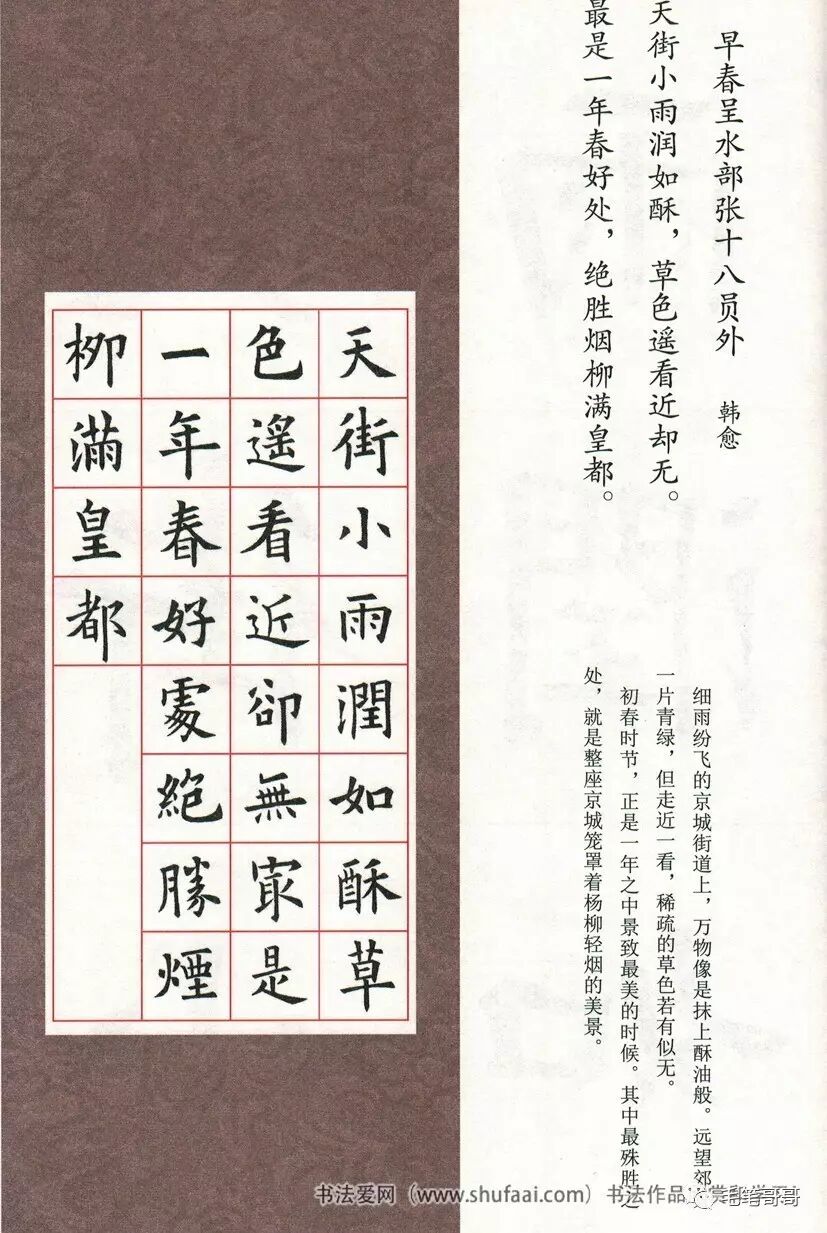 早春呈水部张十八员外 韩愈
天街小雨润如酥，草色遥看近却无。
最是一年春好处，绝胜烟柳满皇都。
细雨纷飞的京城街道上，万物像是抹上酥油般。远望郊
一片青绿，但走近一看，稀疏的草色若有似无。
初春时节，正是一年之中景致最美的时候。其中最殊胜之
处，就是整座京城笼罩着杨柳轻烟的美景。
天街小雨潤如酥草
色遥看近卻無冣是
一年春好處絶勝煙
柳滿皇都
书法爱网（www.shufaai.com）书法作品
毛笔哥哥